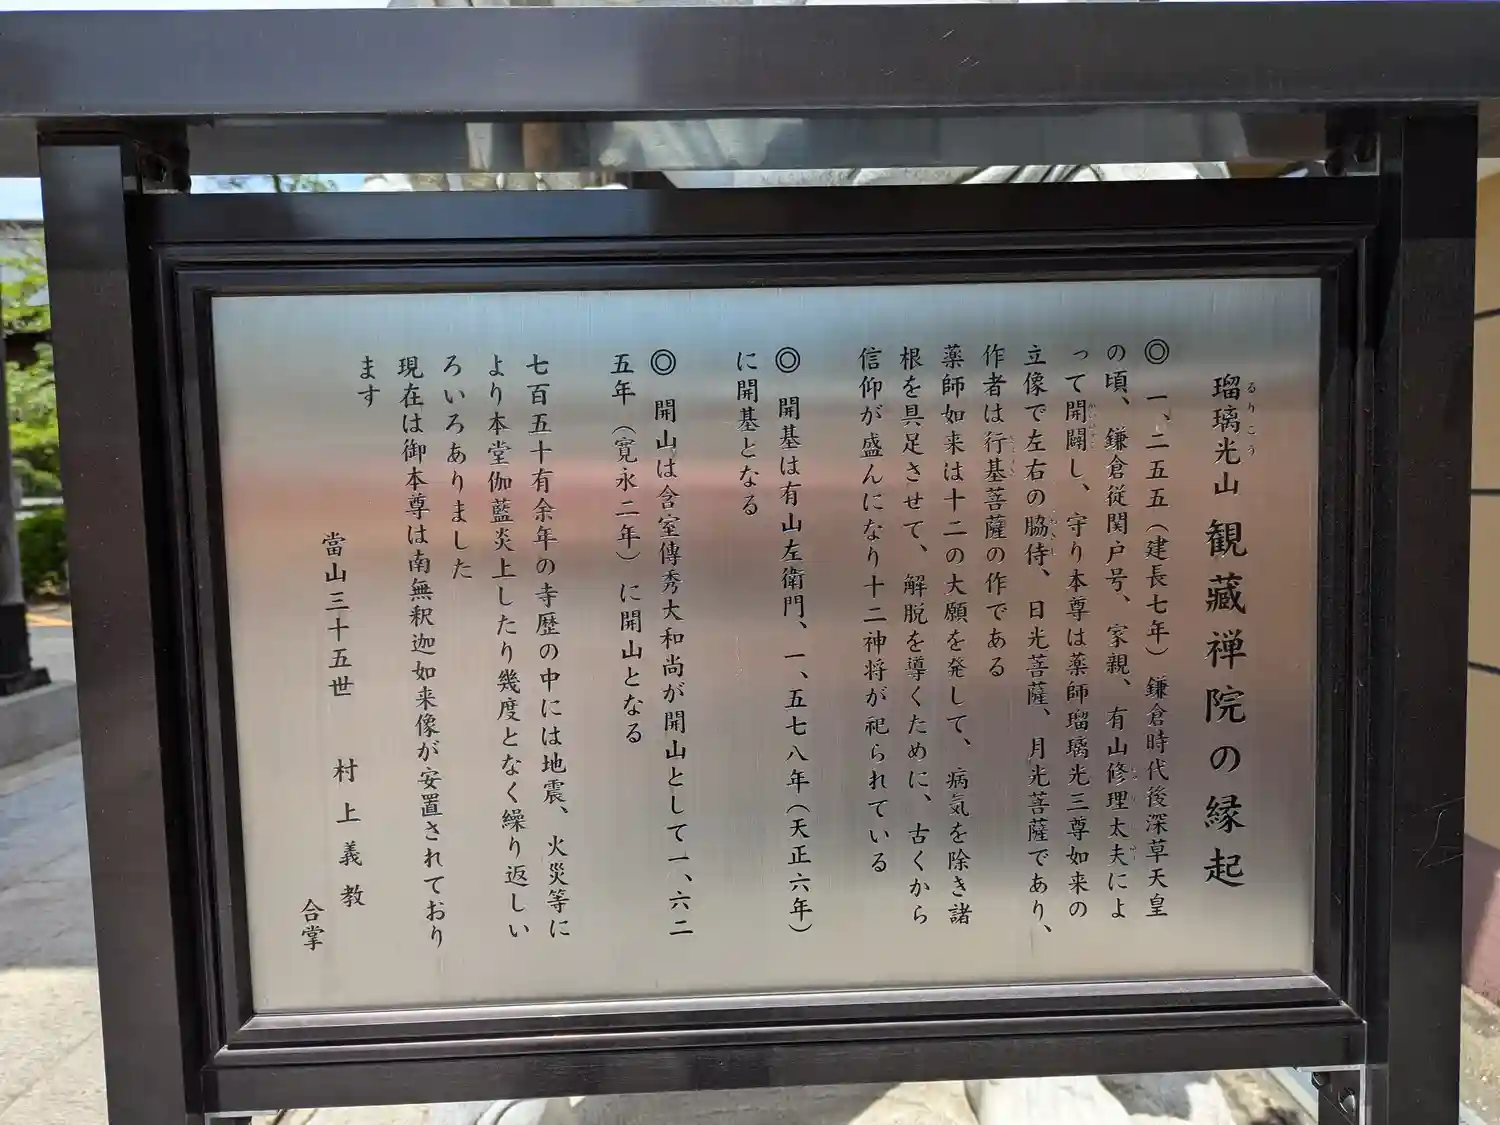 瑠璃光山 観藏禅院の縁起
るりこう
◎ 一、二五五（建長七年）鎌倉時代後深草天皇
の頃、鎌倉従関戸号、家親、有山修理太夫によ
って開闢し、守り本尊は薬師瑠璃光三尊如来の
立像で左右の脇侍、日光菩薩、月光菩薩であり、
作者は行基菩薩の作である
薬師如来は十二の大願を発して、病気を除き諸
根を具足させて、解脱を導くために、古くから
信仰が盛んになり十二神将が祀られている
◎ 開基は有山左衛門、一、五七八年（天正六年）
に開基となる
◎ 開山は含室傳秀大和尚が開山として一、六二
五年（寛永二年）に開山となる
七百五十有余年の寺歴の中には地震、火災等に
より本堂伽藍炎上したり幾度となく繰り返しい
ろいろありました
現在は御本尊は南無釈迦如来像が安置されており
ます
當山三十五世 村上義教
合掌